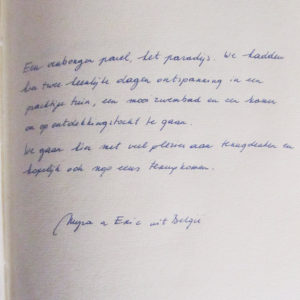 Een verborgen parel, het paradijs. We hadden
hier twee heerlijke dagen ontspanning in een
prachtige tuin, een mooi zwembad en een kamer
om op ontdekkingstocht te gaan.
We gaan hier met veel plezier aan terugdenken en
hopelijk ook nog eens terugkomen.
Myra en Eric uit België